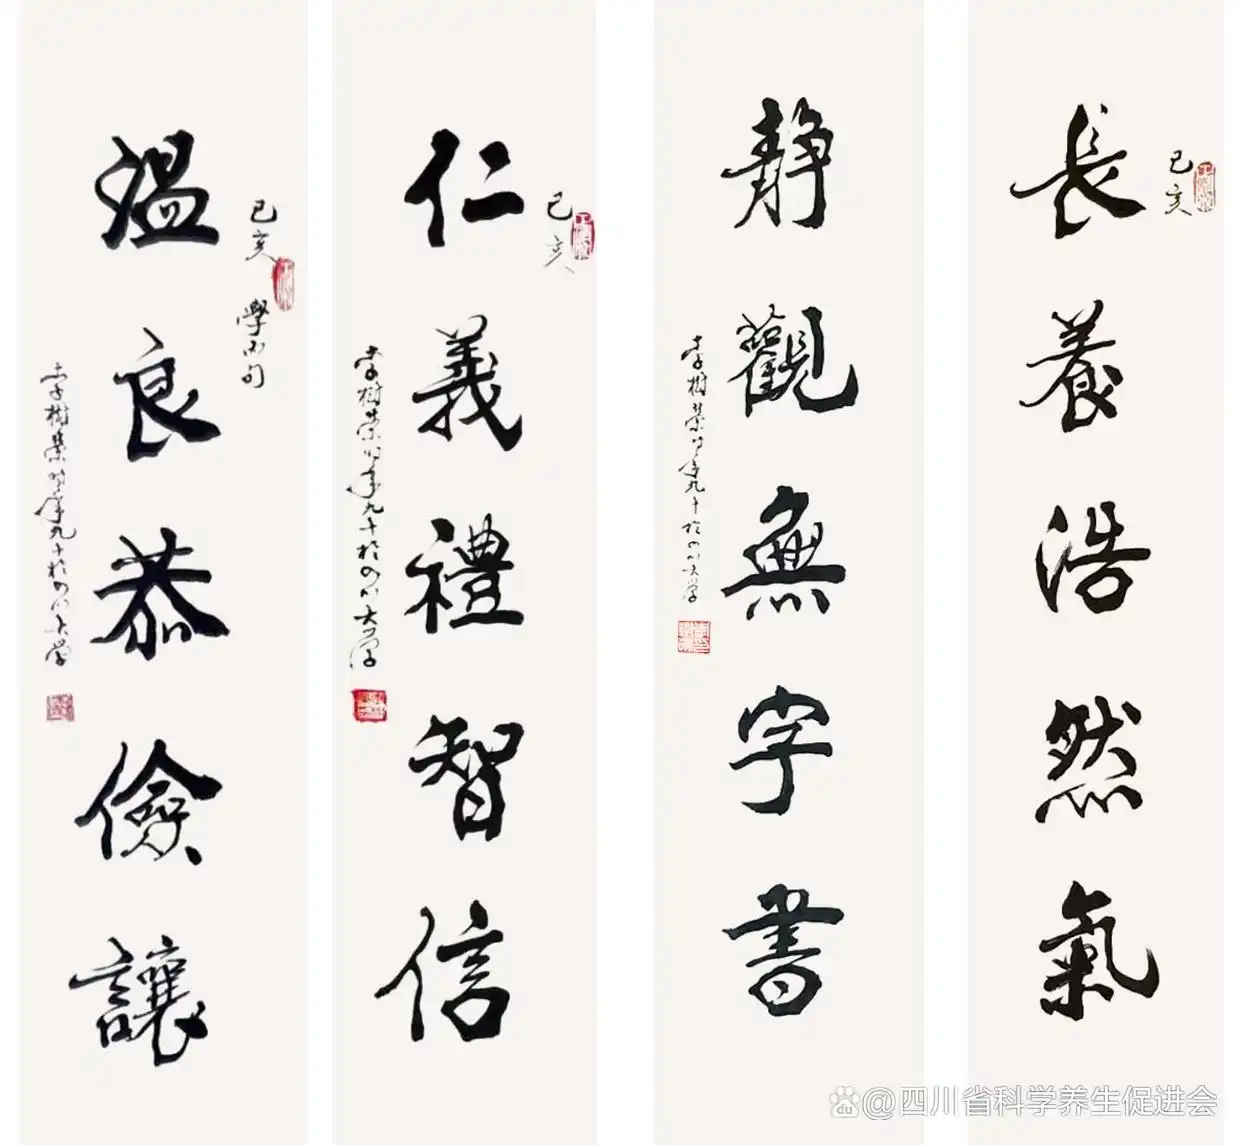 長養浩然氣
己亥
静觀無字書
李樹榮時年九十於四川大学
仁義禮智信
己亥
李樹榮時年九十於四川大學
溫良恭儉讓
己亥
李樹榮時年九十於四川大學
@四川省科学养生促进会